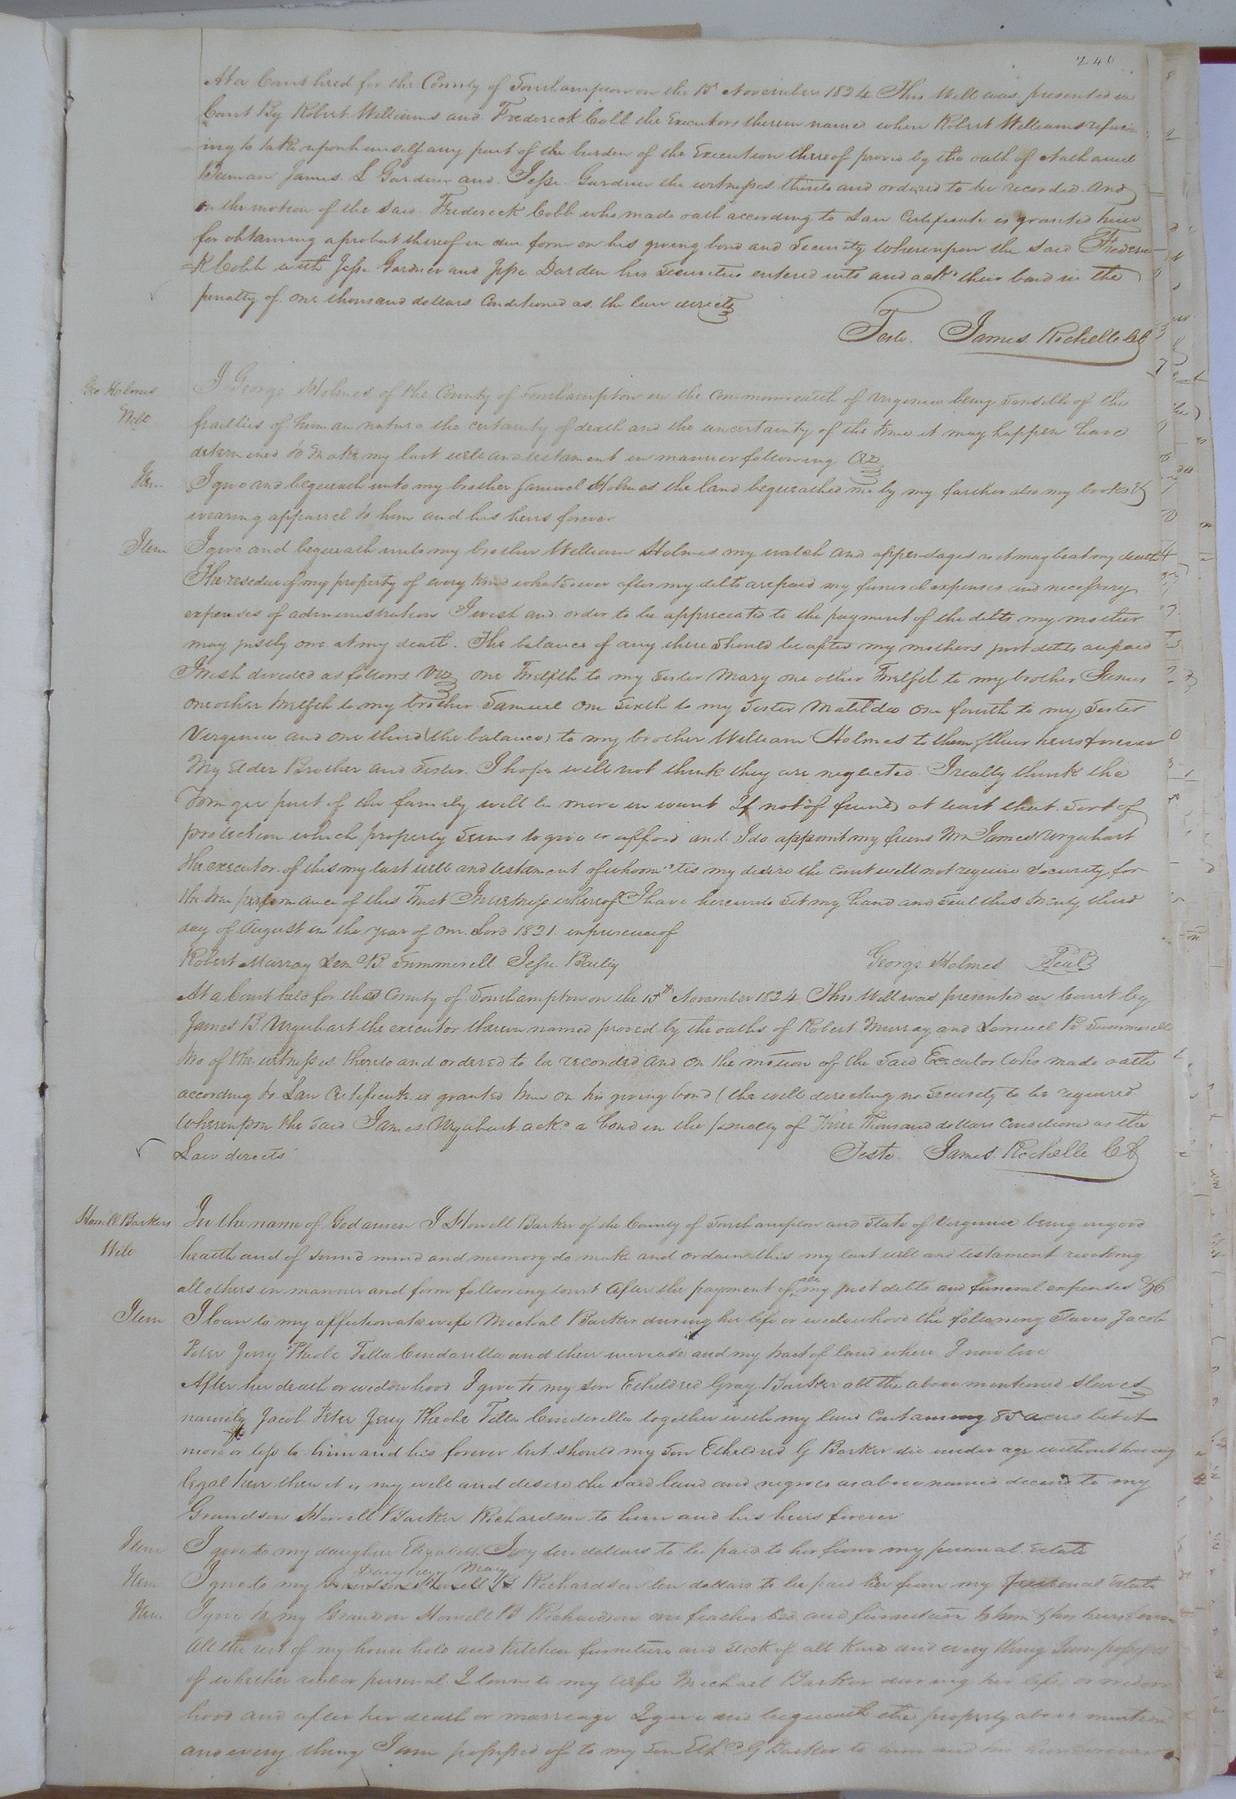 240
At a Court held for the County of Southampton on the 15th November 1824 This Will was presented in
Court By Robert Williams and Frederick Cobb the Executors therein name when Robert Williams refus
ing to take upon himself any part of the burden of the Execution thereof proved by the oath of Nathaniel
James L Gardner and Jesse Gardner the witnesses thereto and ordered to be recorded. And
on the motion of the said Frederick Cobb who made oath according to Law Certificate is granted him
for obtaining a probat thereof in due form on his giving bond and Security Whereupon the said Frederic
=k Cobb with Jesse Gardner and Jesse Darden his Securities entered into and ackd their bond in the
penalty of one thousand dollars Conditioned as the law directs
Teste. James Rochelle CC
Geo Holmes
Will
I George Holmes of the County of Southampton in the Commonwealth of Virginia being Sensible of the
frailties of human nature the certainty of death and the uncertainty of the time it may happen have
determined to make my last will and testament in manner following Viz
Item I give and bequeath unto my brother Samuel Holmes the land bequeathed me by my father also my books &
wearing apparrel to him and his heirs forever
Item I give and bequeath unto my brother William Holmes my watch and appendages as it may be at my death
The residue of my property of every kind whatsoever after my debts are paid my funeral expenses and necessary
expenses of administration I wish and order to be appreciated to the payment of the debts my mother
may justly owe at my death. The balance if any there should be after my mothers just debts are paid
I wish divided as follows Viz one Twelfth to my Sister Mary one other Twelfth to my brother James
one other twelfth to my brother Samuel one Sixth to my Sister Matilda one fourth to my Sister
Virginia and one third (the balance) to my brother William Holmes to them & their heirs forever
My Elder Brother and Sister I hope will not think they are neglected. I really think the
Younger part of the family will be more in want If not of friends at least that Sort of
protection which property Seems to give or afford and I do appoint my friend Mr James Urquhart
the executor of this my last will and testament of whom 'tis my desire the court will not require Security for
the true performance of this Trust In witness whereof I have hereunto Set my hand and Seal this twenty third
day of August in the year of our Lord 1821. in presence of
Robert Murray Lem B Summerell Jesse Baily George Holmes Seal
At a Court held for the County of Southampton on the 15th November 1824 This Will was presented in Court by
James B Urquhart the executor therein named proved by the oaths of Robert Murray and Lemuel B Summerell
two of the witnesses thereto and ordered to be recorded And on the motion of the Said Executor Who made oath
according to Law Certificate is granted him on his giving bond (the will directing no Security to be required
Whereupon the Said James Urquhart ackd a bond in the penalty of Thousand dollars Conditioned as the
Law directs Teste. James Rochelle CC
Howell Barkers
Will
In the name of God amen I Howell Barker of the County of Southampton and State of Virginia being in good
health and of Sound mind and memory do make and ordain this my last will and testament revoking
all others in manner and form following to wit After the payment of all my just debts and funeral expenses &c
Item I loan to my affectionate wife Michal Barker during her life or widowhood the following Slaves Jacob
Peter Jerry Pheobe Tilla Cindarilla and their increase and my tract of land where I now live
After her death or widowhood I give to my son Etheldred Gray Barker all the above mentioned slaves
namily Jacob Peter Jerry Pheobe Tilla Cinderella together with my land Containing 85 acres let it
more or less to him and his forever but should my Son Etheldred G Barker die under age without having
legal heir then it is my will and desire the said land and negroes as above named decend to my
Grandson Howell Barker Richardson to him and his heirs forever
Item I give to my daughter Elizabeth Ivey ten dollars to be paid to her from my personal Estate
Item I give to my Daughter Mary Richardson ten dollars to be paid her from my personal Estate
Item I give to my Grandson Howell B Richardson one feather bed and furniture to him & his heirs forever
All the rest of my house hold and kitchen furniture and stock of all kind and every thing I am possessed
of whether real or personal I loan to my wife Michael Barker during her life or widow
hood and after her death or marriage I give and bequeath the property above mentioned
and every thing I am possessed of to my Son Ethd G Barker to him and his heirs forever